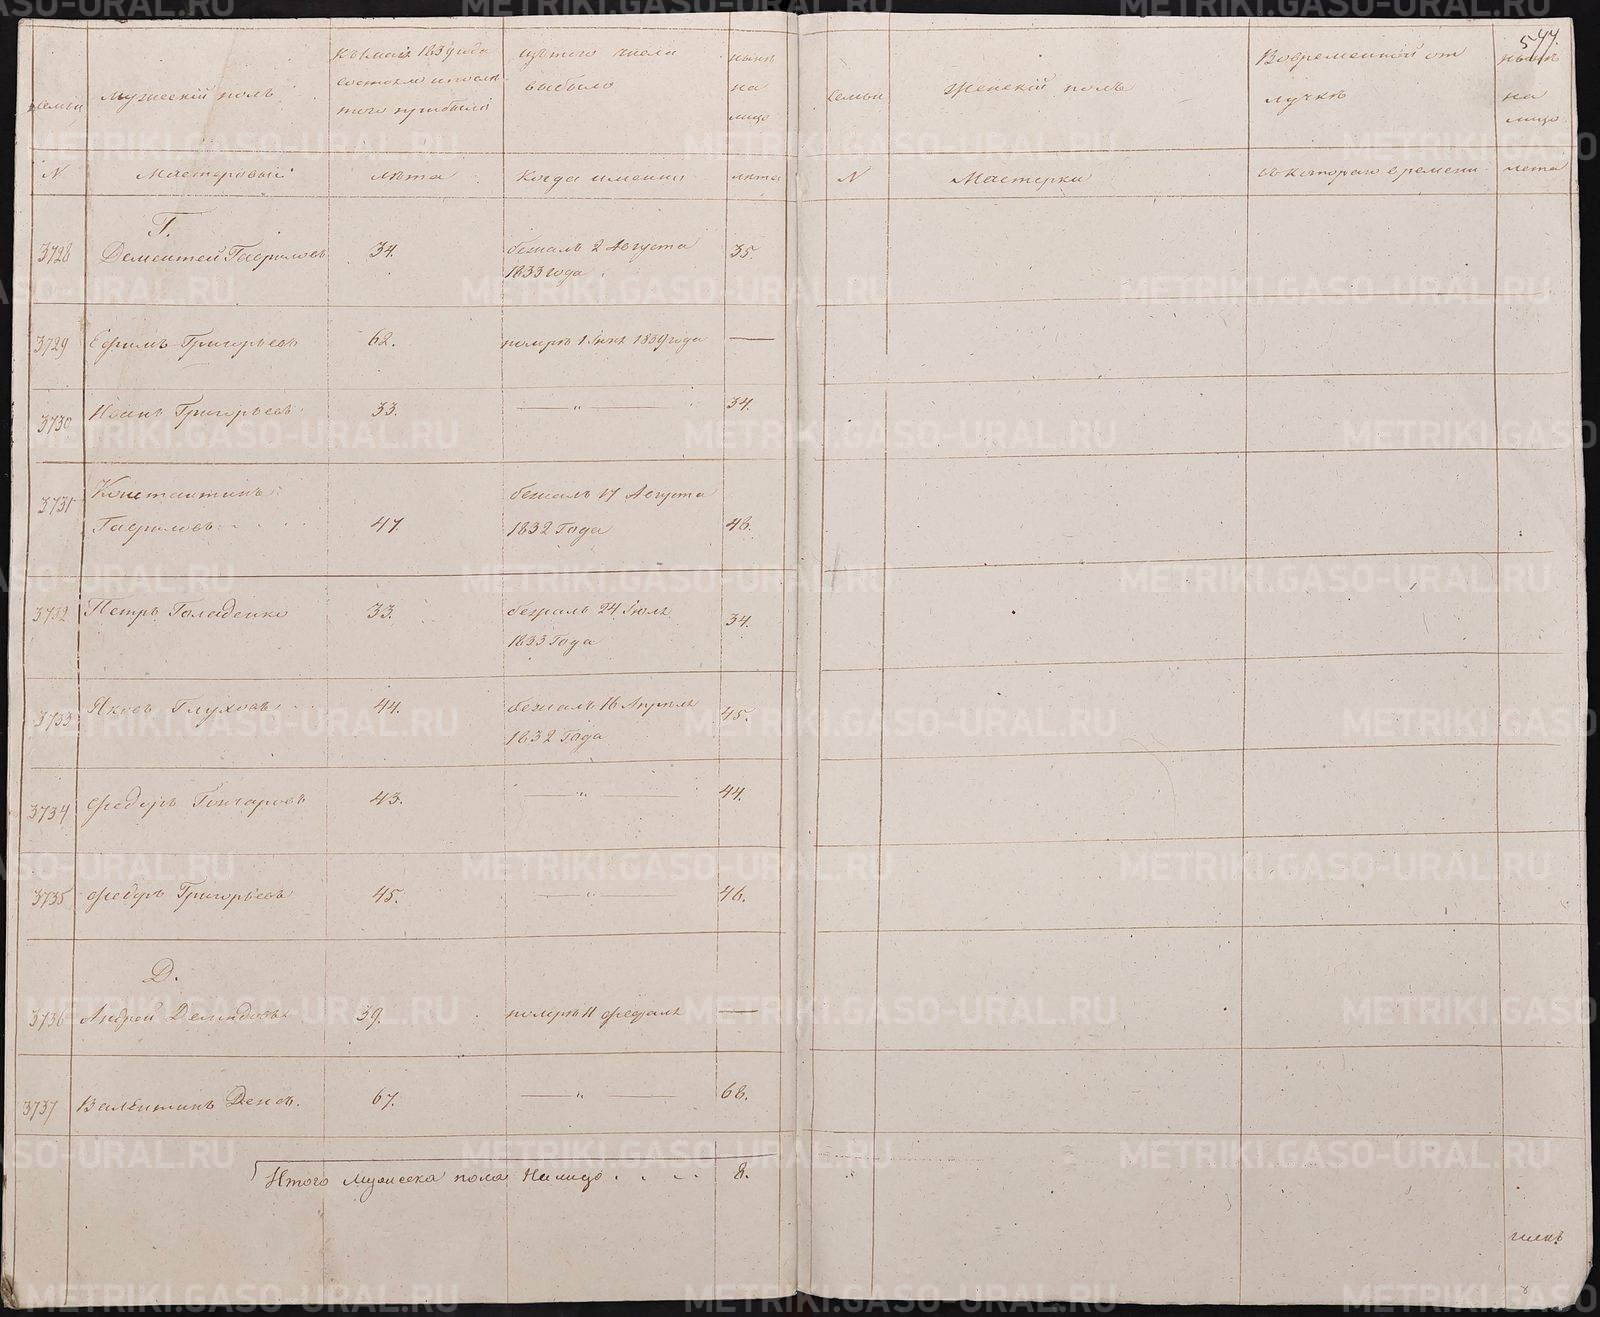 577.
Семьи
Мужескій полъ
Къ 1 маія 1839 года
состояло и после
того прибыло
изъ того числа
выбыло
ныне
на
лицо
Семьи
Женскій полъ
Во временной от
лучкѣ
ныне
на
лицо
N
Мастеровыи
лѣта
когда именно
лѣта
N
Мастерки
съ котораго времени
лета
Г.
3728
Дементей Гавриловъ
34.
бежалъ 2 Августа
1833 года
35.
3729
Ефимъ Григорьевъ
62.
померъ 1 Іюня 1839 года
—
3730
Иванъ Григорьевъ
33.
— „ —
34.
3731
Константинъ
Гавриловъ
47.
бежалъ 17 Августа
1832 Года
48.
3732
Петръ Голаденко
33.
бежалъ 24 Іюля
1833 Года
34.
3733
Яковъ Глуховъ
44.
бежалъ 16 Апреля
1832 Года
45.
3734
Федоръ Гончаровъ
43.
— „ —
44.
3735
Федоръ Григорьевъ
45.
— „ —
46.
Д.
3736
Андрей Демидовъ
39.
померъ 11 февраля
—
3737
Валентинъ Деевъ.
67.
— „ —
68.
Итого мужеска пола на лицо . . . .
8.
METRIKI.GASO-URAL.RU